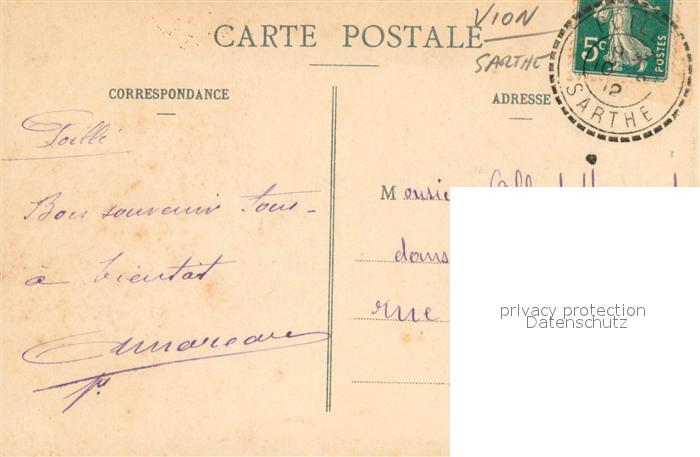 CARTE POSTALE
VION
SARTHE
5c
POSTES
SARTHE
CORRESPONDANCE
ADRESSE
Bon souvenir Tous -
à bientot
dans
rue
privacy protection
Datenschutz